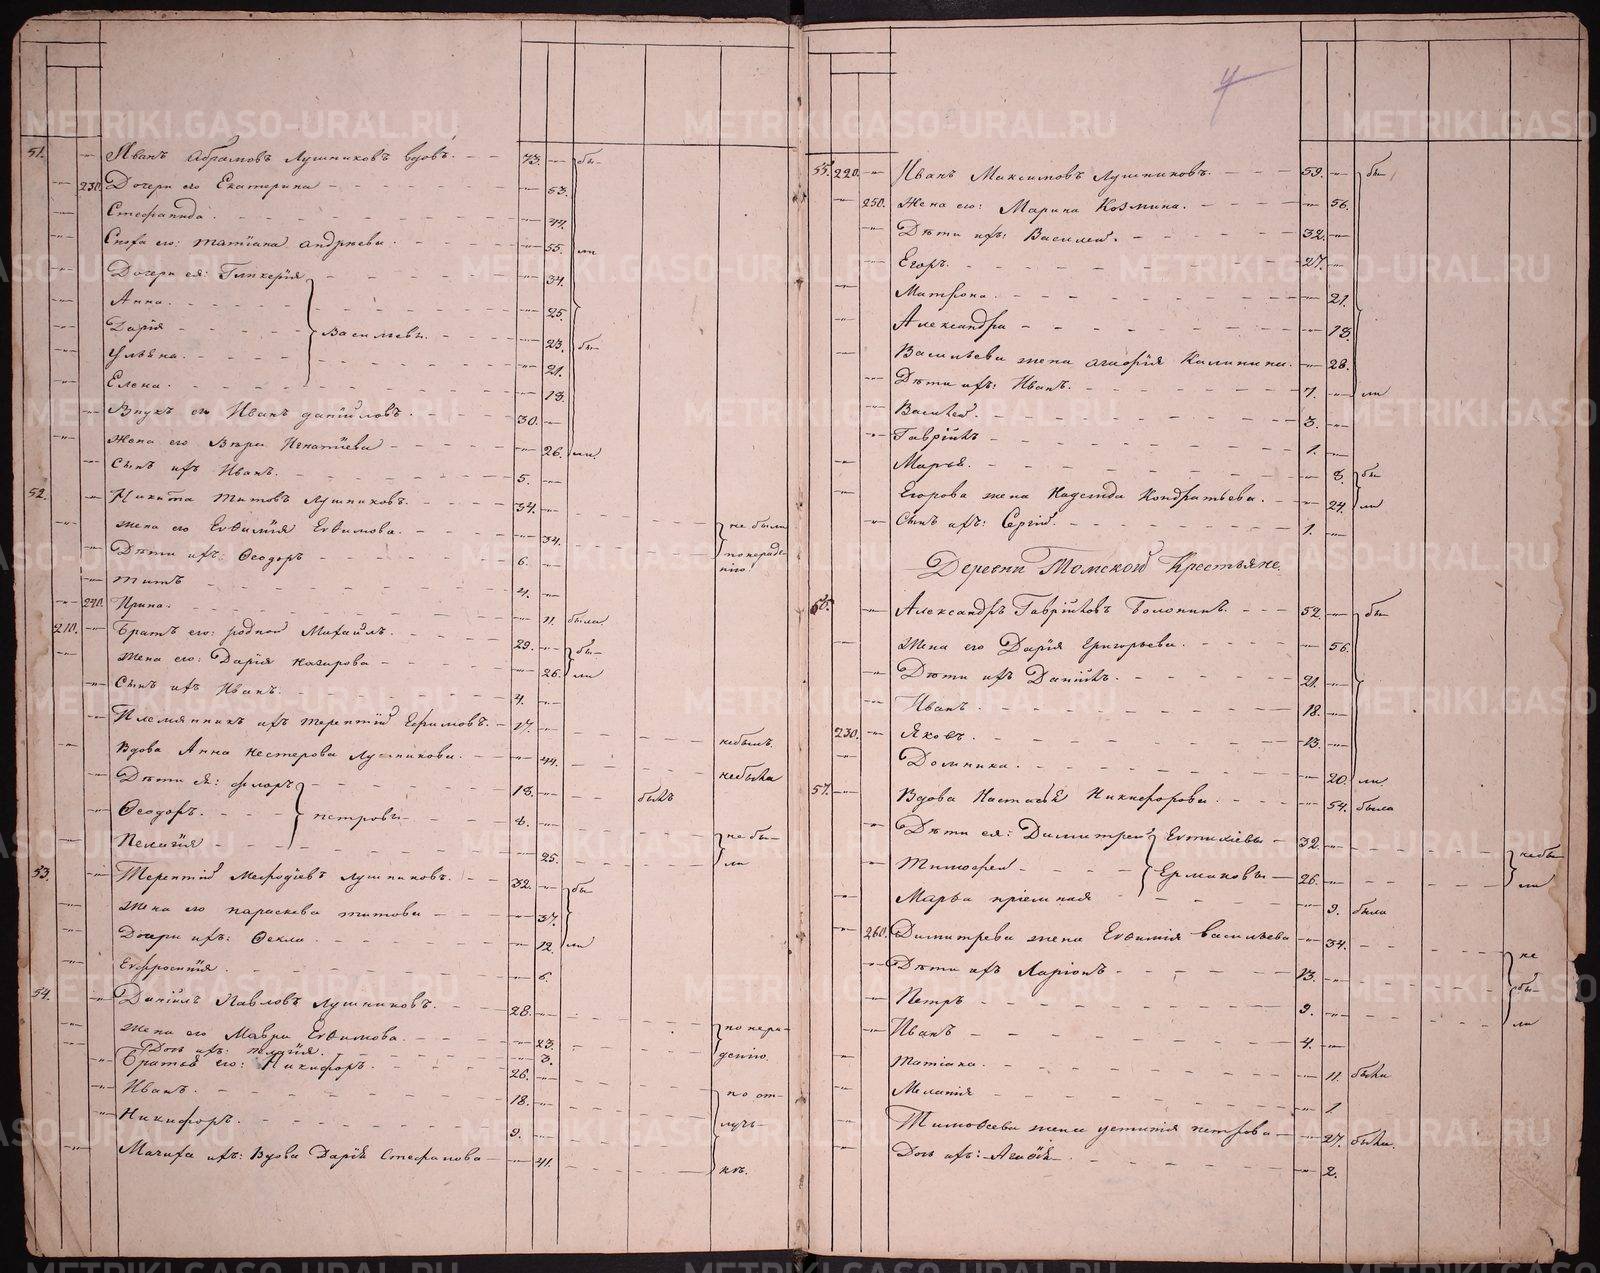 51. Иванъ Абрамовъ Лушниковъ вдовъ. 73. бы-
230. Дочери его Екатерина 53.
Стефанида. 44.
Сноха его: Татіана Андрѣева. 55. ли
Дочери ея: Гликерія 34.
Анна. 25.
Дарія Васильевы. 23. бы-
Ульяна. 21.
Елена. 13.
Внукъ его Иванъ Даніиловъ. 30.
Жена его Вѣра Игнатіева 26. ли.
Сынъ ихъ Иванъ. 5.
52. Никита Титовъ Лушниковъ. 34.
Жена его Евѳимія Евѳимова. 34. не были
Дѣти ихъ: Ѳеодоръ 6. по нераде-
Титъ 4. нію.
240. Ирина. 11. была
210. Братъ его: родной Михаилъ. 29. бы-
Жена его: Дарія Назарова 26. ли
Сынъ ихъ Иванъ. 4.
Племянникъ ихъ Терентій Ефимовъ. 17. небылъ.
Вдова Анна Нестерова Лушникова. 44. небыла
Дѣти ея: Флоръ 18. былъ
Ѳеодоръ. Петровы 8.
Пелагія 25. не бы-
ли
53. Терентій Меѳодіевъ Лушниковъ. 32. бы
Жена его Параскева Титова 37.
Дочери ихъ: Ѳекла. 12. ли
Евфросинія. 6.
54. Даніилъ Павловъ Лушниковъ. 28.
Жена его Мавра Евѳимова. 23. по нера-
Дочь ихъ: Пелагія. 3. денію.
Братья его: Никифоръ. 26.
Иванъ. 18. по от-
Никифоръ. 9. луч-
Мачиха ихъ: Вдова Дарія Стефанова 41. кѣ.
4
55. 220. Иванъ Максимовъ Лушниковъ. 59. бы
250. Жена его: Марина Козмина. 56.
Дѣти ихъ: Василей. 32.
Егоръ. 27.
Матрона. 21.
Александра 13.
Васильева жена Агафія Калинина. 28.
Дѣти ихъ: Иванъ. 7. ли
Василей. 3.
Гавріилъ 1.
Марья. 8. бы
Егорова жена Надежда Кондратьева. 24. ли
Сынъ ихъ: Сергій. 1.
Деревни Томской Крестьяне.
56. Александръ Гавріиловъ Болонинъ. 52. бы
Жена его Дарія Григорьева. 56.
Дѣти ихъ Даніилъ. 21.
Иванъ. 18.
230. Яковъ. 13.
Домника. 20. ли
57. Вдова Настасья Никифорова. 54. была
Дѣти ея: Димитрей Евтихіевы 32. небы-
Тимофей Ермаковы 26. ли
Марья пріемная 9. была
260. Димитрева жена Евѳимія Васильева 34. не
Дѣти ихъ Ларіонъ 13. бы-
Петръ 9. ли
Иванъ 4.
Татіана. 11. была
Меланія 1
Тимоѳеева жена Устинія Петрова 27. была.
Дочь ихъ: Агаѳія. 2.